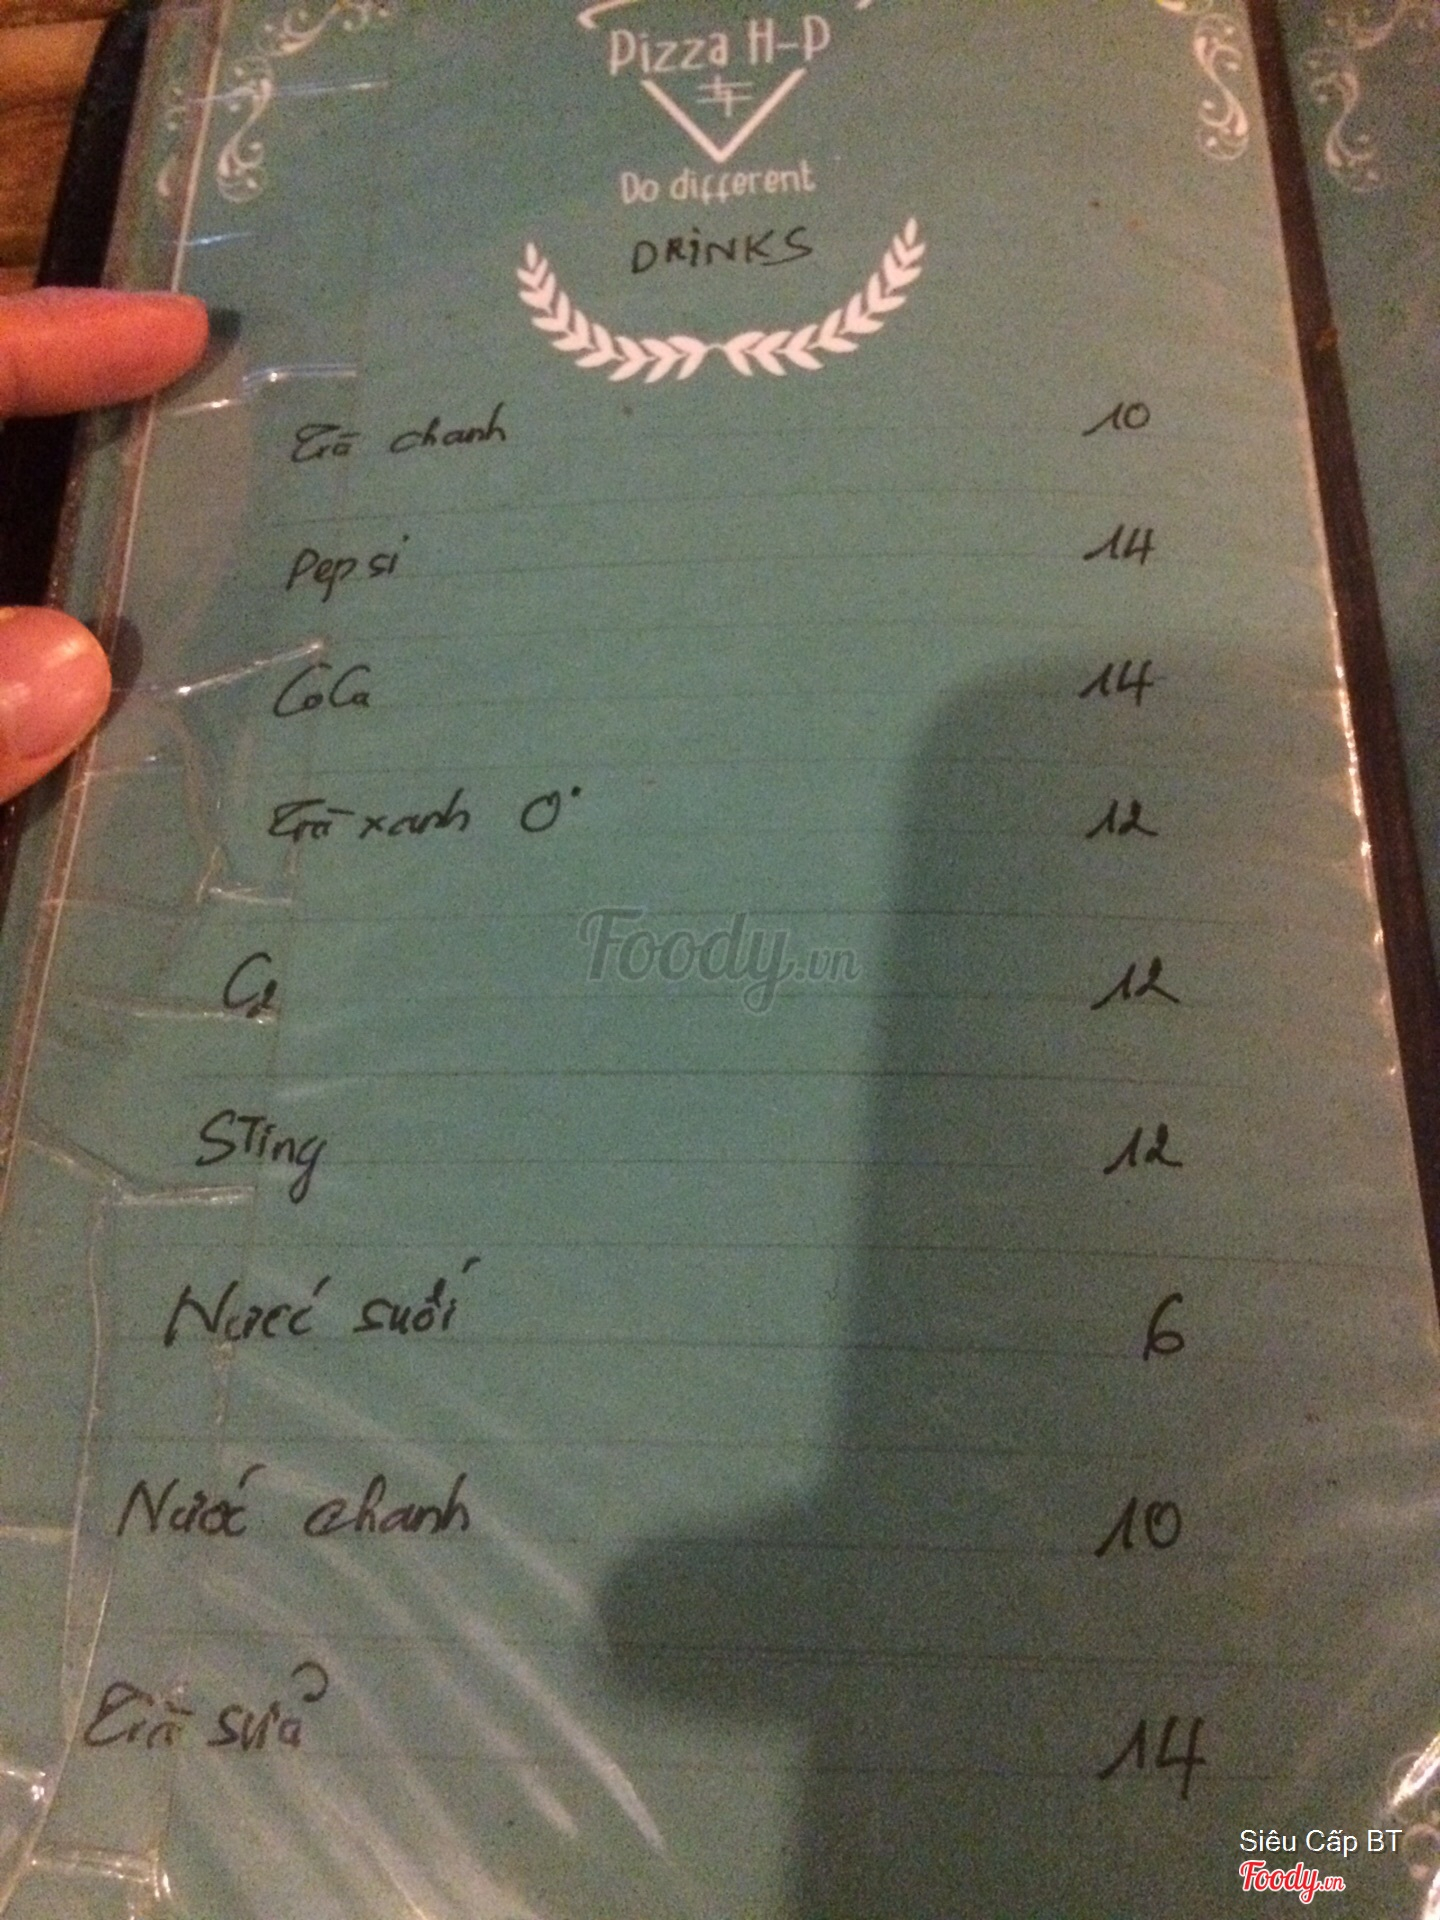 Pizza H-P
Do different
DRINKS
Trà chanh 10
Pepsi 14
CoCa 14
Trà xanh O° 12
C2 12
STing 12
Nước suối 6
Nước chanh 10
Trà sửa 14
Foody.vn
Siêu Cấp BT
Foody.vn